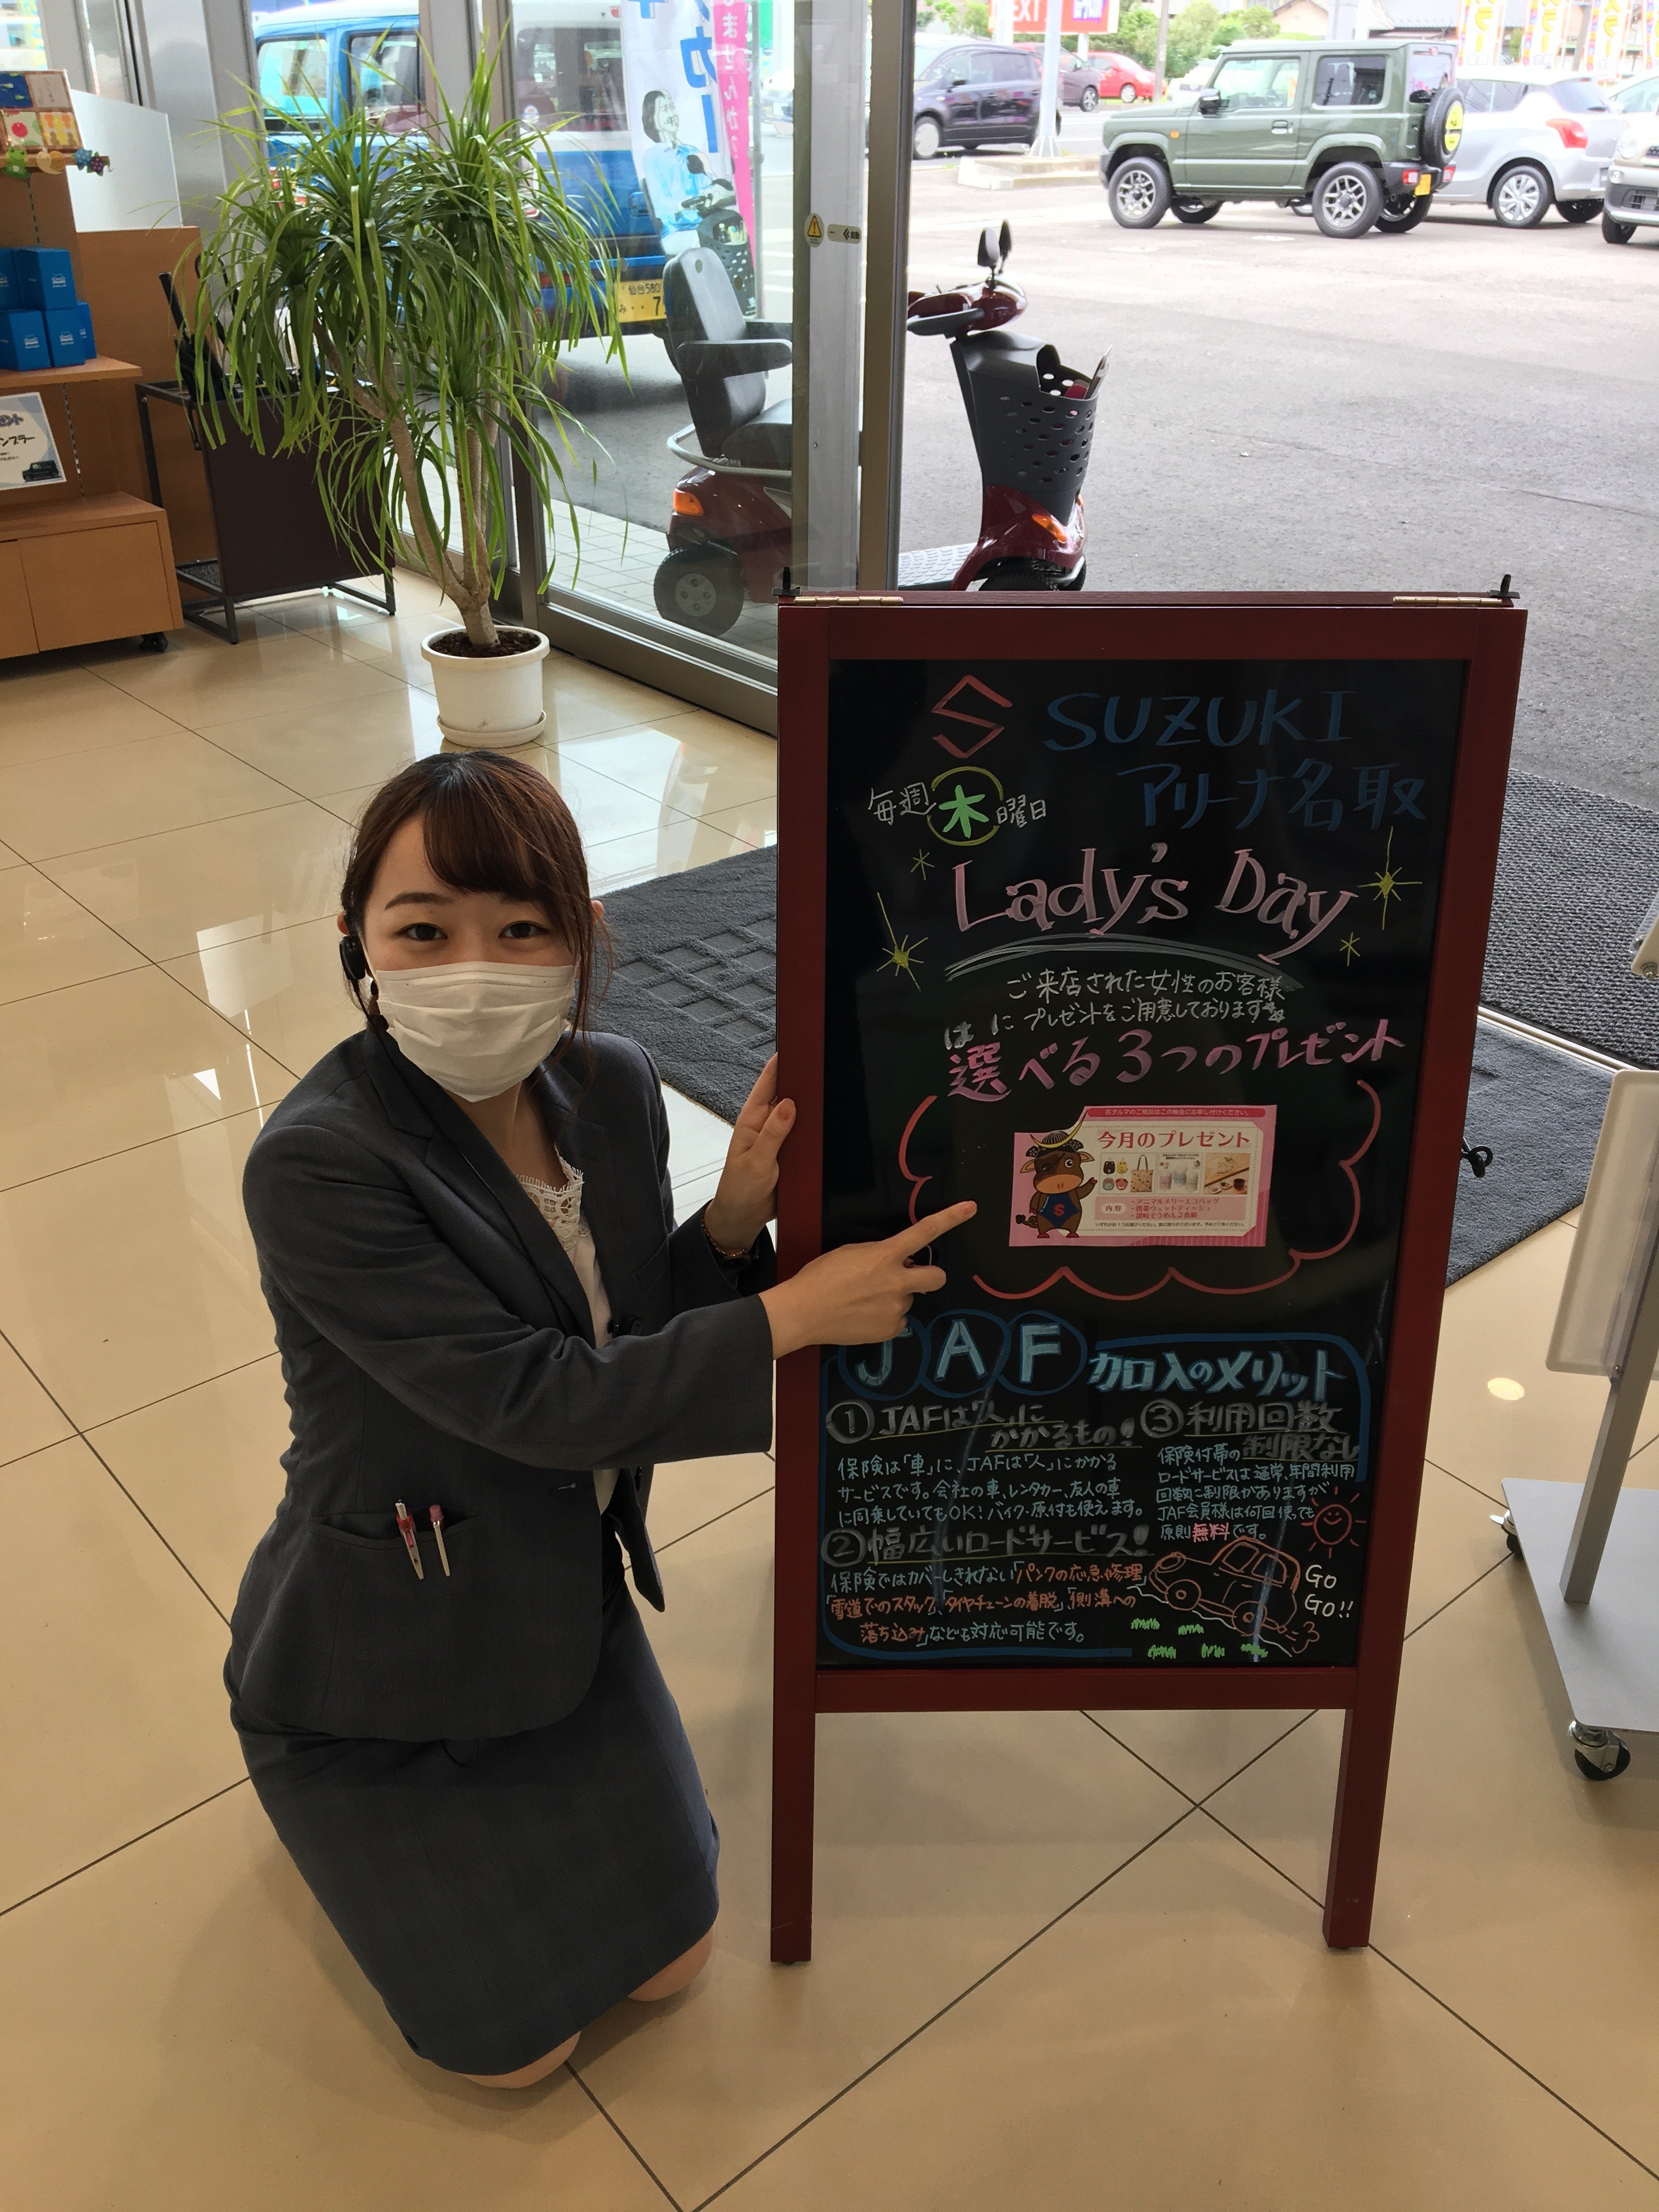 S SUZUKI
アリーナ名取
毎週木曜日
Lady's Day
ご来店された女性のお客様
にプレゼントをご用意しております
は
選べる3つのプレゼント
おクルマのご相談はこの機会にお申し付けください。
今月のプレゼント
内容
・アニマルメリーエコバッグ
・携帯ウェットティッシュ
・讃岐そうめん2食組
S
JAF 加入のメリット
①JAFは「人」に
かかるもの!
保険は「車」に、JAFは「人」にかかる
サービスです。会社の車、レンタカー、友人の車
に同乗していてもOK!バイク・原付も使えます。
②幅広いロードサービス!
保険ではカバーしきれない「パンクの応急修理」
「雪道でのスタック」「タイヤチェーンの着脱」「側溝への
落ち込み」なども対応可能です。
③利用回数
制限なし
保険付帯の
ロードサービスは通常、年間利用
回数に制限がありますが
JAF会員様は何回使っても
原則無料です。
GO
GO!!
仙台580
み・・7